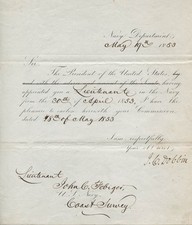 Navy Department,
May 19th 1853
Sir,
The President of the United States, by
appointed you a Lieutenant in the Navy
from the 30th of April 1853, I have
the pleasure to enclose herewith your Commission
dated 18th of May 1853
I am, respectfully,
J. C. Dobbin
Lieutenant
John C. Febiger
U. S. Navy
Coast Survey